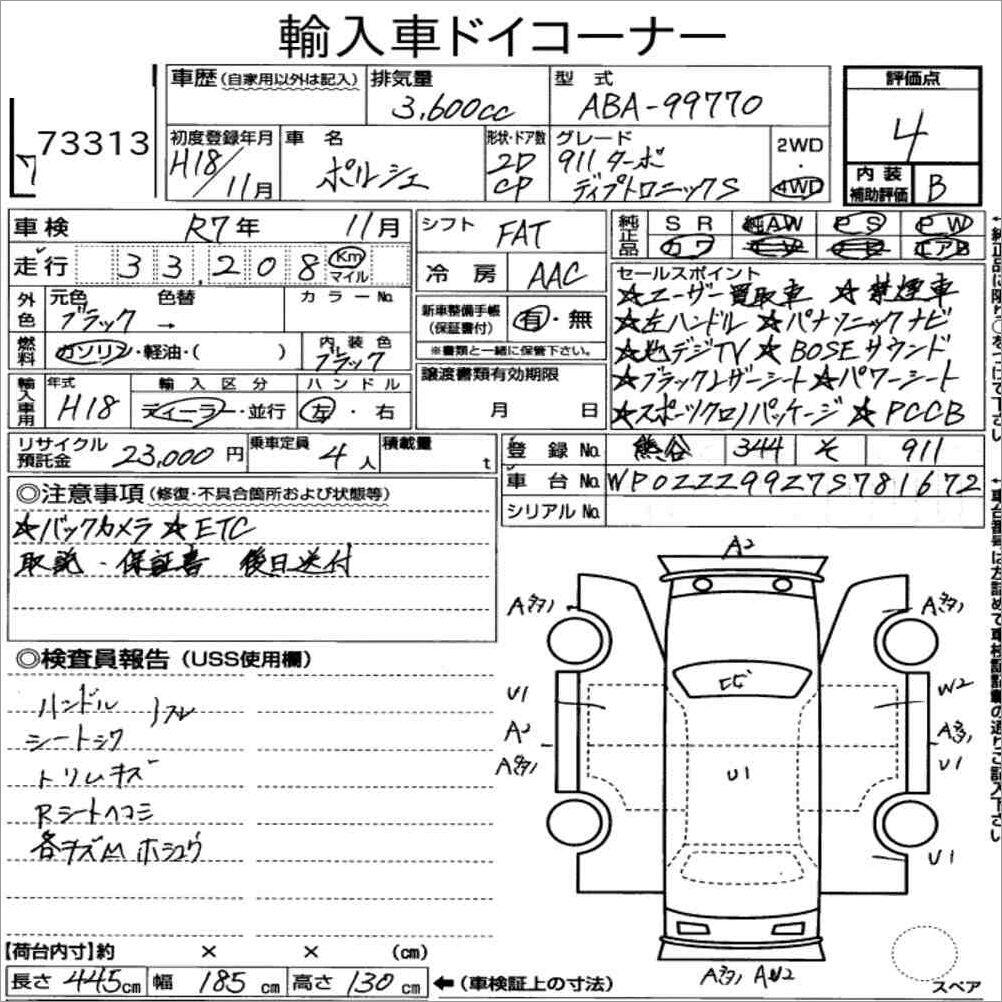 輸入車ドイコーナー
車歴 (自家用以外は記入) 排気量 型式 評価点
3,600cc ABA-99770 4
73313
初度登録年月 車名 形状・ドア数 グレード 2WD・4WD 内装補助評価 B
H18/11月 ポルシェ 2D CP 911ターボ
ティプトロニックS
車検 R7年 11月 シフト FAT 純正品 SR 純AW PS PW
走行 33,208 Km マイル 冷房 AAC カワ エアB
外色 元色 色替 カラーNo.
ブラック →
新車整備手帳 (保証書付) 有・無
※書類と一緒に保管下さい。
燃料 ガソリン・軽油・( ) 内装色 ブラック
譲渡書類有効期限
月 日
セールスポイント
☆ユーザー買取車 ☆禁煙車
☆左ハンドル ☆パナソニックナビ
☆地デジTV ☆BOSEサウンド
☆ブラックレザーシート ☆パワーシート
☆スポーツクロノパッケージ ☆PCCB
輸入車用 年式 輸入区分 ハンドル
H18 ディーラー・並行 左・右
リサイクル預託金 23,000円 乗車定員 4人 積載量 t
登録No. 熊谷 344 そ 911
車台No. WP0ZZZ99Z7S781672
シリアルNo.
◎注意事項 (修復・不具合箇所および状態等)
☆バックカメラ ☆ETC
取説・保証書 後日送付
◎検査員報告 (USS使用欄)
ハンドル スレ
シートシワ
トリムキズ
Rシートヘコミ
各キズM ホシュウ
A2
A多ノ A多ノ
U1 W2
A2 A多ノ
A多ノ U1
U1
U1
A多ノ AU2
スペア
【荷台内寸】約 × × (cm)
長さ 445cm 幅 185cm 高さ 130cm ←(車検証上の寸法)
↑純正品に限り○をつけて下さい
↑車台番号は左詰めで車検証記載の通りご記入下さい